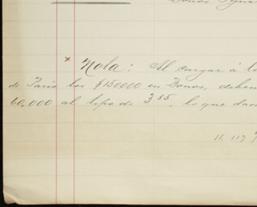 Bonos
× Nota: Al cargar á l
de Paris los $150000 en Bonos, deben
60,000 al tipo de 3 85, lo que dan
11.117